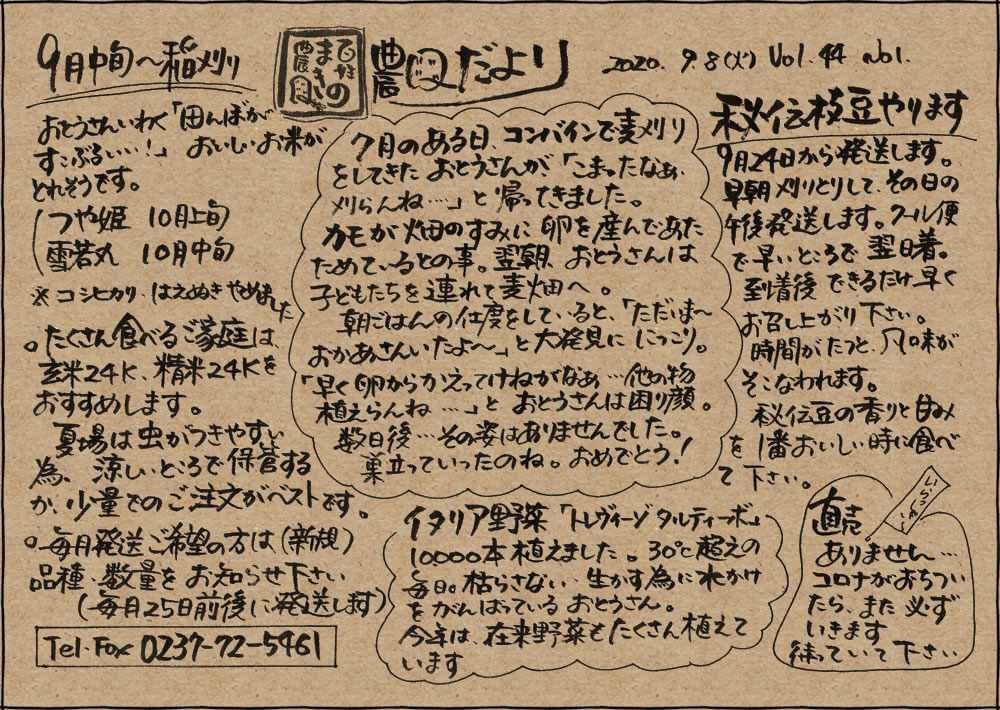 農園だより
2020. 9.8(火) Vol.44 no1.
まきの
農園
9月中旬〜稲刈り
おとうさんいわく「田んぼが
すこぶるいい…!」 おいしいお米が
とれそうです。
つや姫 10月上旬
雪若丸 10月中旬
※コシヒカリ、はえぬきやめました
○たくさん食べるご家庭は、
玄米24K、精米24Kを
おすすめします。
夏場は虫がつきやすい
為、涼しいところで保管する
か、少量でのご注文がベストです。
○毎月発送ご希望の方は(新規)
品種・数量をお知らせ下さい
(毎月25日前後に発送します)
Tel・Fax 0237-72-5461
7月のある日、コンバインで麦刈り
をしてきたおとうさんが「こまったなぁ、
刈らんね…」と帰ってきました。
カモが畑のすみに卵を産んであた
ためているとの事。翌朝、おとうさんは
子どもたちを連れて麦畑へ。
朝ごはんの仕度をしていると、「ただいま〜
おかあさんいたよ〜」と大発見ににっこり。
「早く卵からかえってけねがなぁ…他の物
植えらんね…」と おとうさんは困り顔。
数日後…その姿はありませんでした。
巣立っていったのね。おめでとう!
イタリア野菜「トレヴィーゾタルティーボ」
10000本植えました。30℃超えの
毎日。枯らさない、生かす為に水かけ
をがんばっているおとうさん。
今年は、在来野菜もたくさん植えて
います
秘伝枝豆やります
9月24日から発送します。
早朝刈りとりして、その日の
午後発送します。クール便
で早いところで翌日着。
到着後できるだけ早く
お召し上がり下さい。
時間がたつと、風味が
そこなわれます。
秘伝豆の香りと甘み
を1番おいしい時に食べ
て下さい。
直売
ありません…
コロナがおちつい
たら、また必ず
いきます
待っていて下さい